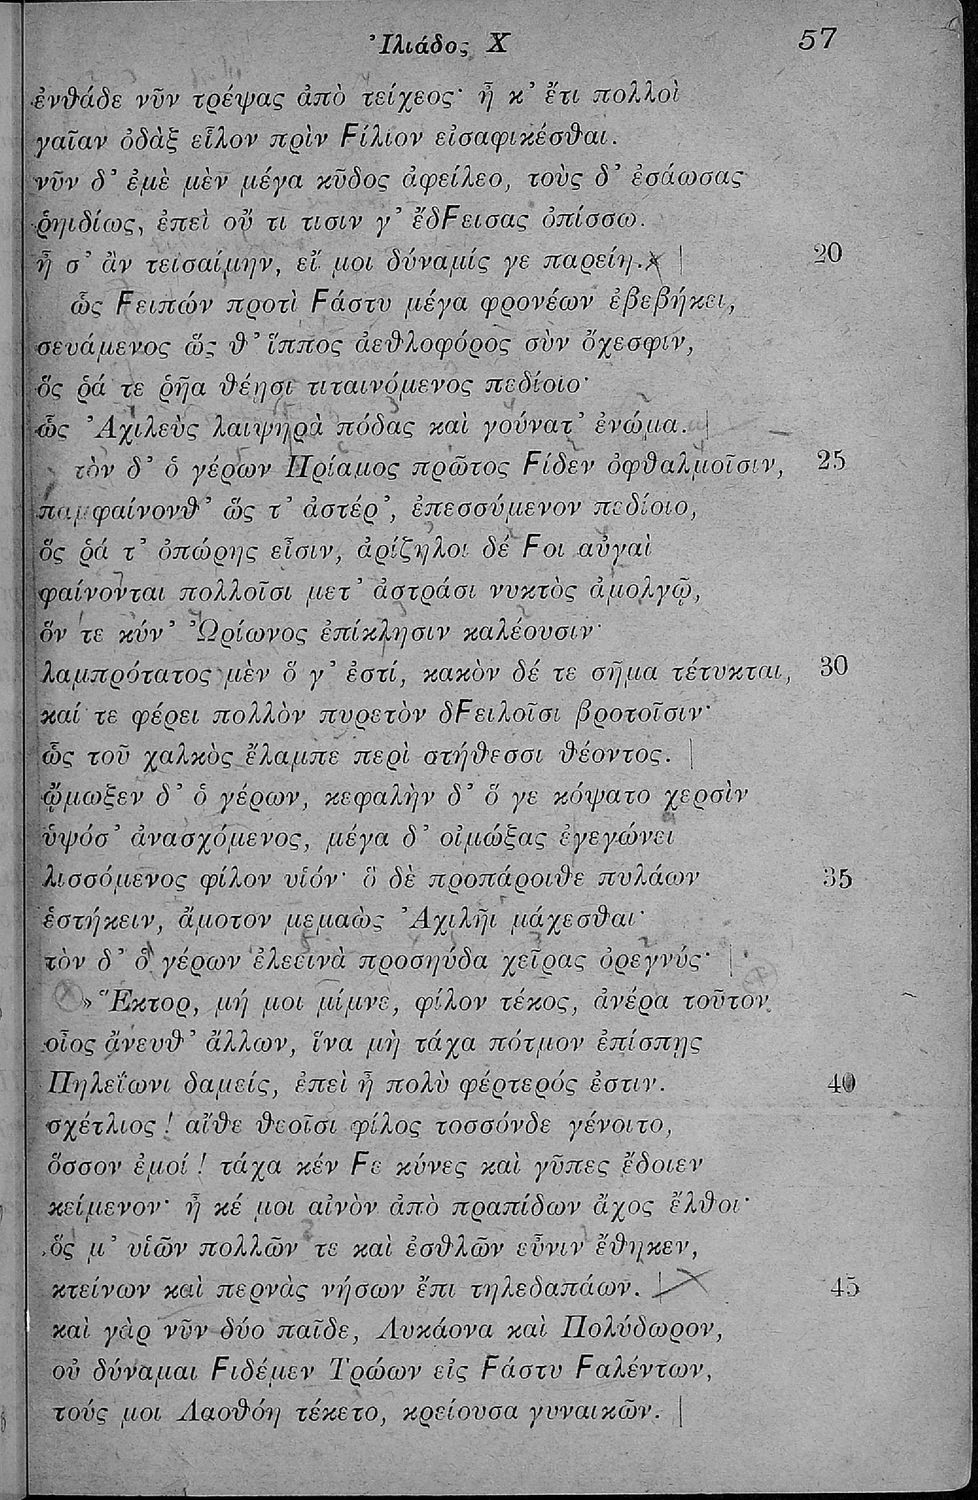 Ἰλιάδος Χ 57
ἐνθάδε νῦν τρέψας ἀπὸ τείχεος· ἦ κ' ἔτι πολλοὶ
γαῖαν ὀδὰξ εἷλον πρὶν Ϝίλιον εἰσαφικέσθαι.
νῦν δ' ἐμὲ μὲν μέγα κῦδος ἀφείλεο, τοὺς δ' ἐσάωσας
ῥηιδίως, ἐπεὶ οὔ τι τισιν γ' ἔδϜεισας ὀπίσσω.
ἦ σ' ἂν τεισαίμην, εἴ μοι δύναμίς γε παρείη. 20
ὣς Ϝειπών προτὶ Ϝάστυ μέγα φρονέων ἐβεβήκει,
σευάμενος ὥς θ' ἵππος ἀεθλοφόρος σὺν ὄχεσφιν,
ὅς ῥά τε ῥῆα θέησι τιταινόμενος πεδίοιο·
ὣς Ἀχιλεὺς λαιψηρὰ πόδας καὶ γούνατ' ἐνώμα.
τὸν δ' ὁ γέρων Πρίαμος πρῶτος Ϝίδεν ὀφθαλμοῖσιν, 25
παμφαίνονθ' ὥς τ' ἀστέρ', ἐπεσσύμενον πεδίοιο,
ὅς ῥά τ' ὀπώρης εἶσιν, ἀρίζηλοι δέ Ϝοι αὐγαὶ
φαίνονται πολλοῖσι μετ' ἀστράσι νυκτὸς ἀμολγῷ,
ὅν τε κύν' Ὠρίωνος ἐπίκλησιν καλέουσιν·
λαμπρότατος μὲν ὅ γ' ἐστί, κακὸν δέ τε σῆμα τέτυκται, 30
καί τε φέρει πολλὸν πυρετὸν δϜειλοῖσι βροτοῖσιν·
ὣς τοῦ χαλκὸς ἔλαμπε περὶ στήθεσσι θέοντος.
ᾤμωξεν δ' ὁ γέρων, κεφαλὴν δ' ὅ γε κόψατο χερσὶν
ὑψόσ' ἀνασχόμενος, μέγα δ' οἰμώξας ἐγεγώνει
λισσόμενος φίλον υἱόν· ὃ δὲ προπάροιθε πυλάων 35
ἑστήκειν, ἄμοτον μεμαὼς Ἀχιλῆι μάχεσθαι·
τὸν δ' ὁ γέρων ἐλεεινὰ προσηύδα χεῖρας ὀρεγνύς·
»Ἕκτορ, μή μοι μίμνε, φίλον τέκος, ἀνέρα τοῦτον
οἶος ἄνευθ' ἄλλων, ἵνα μὴ τάχα πότμον ἐπίσπῃς
Πηλεΐωνι δαμείς, ἐπεὶ ἦ πολὺ φέρτερός ἐστιν. 40
σχέτλιος! αἴθε θεοῖσι φίλος τοσσόνδε γένοιτο,
ὅσσον ἐμοί! τάχα κέν Ϝε κύνες καὶ γῦπες ἔδοιεν
κείμενον· ἦ κέ μοι αἰνὸν ἀπὸ πραπίδων ἄχος ἔλθοι·
ὅς μ' υἱῶν πολλῶν τε καὶ ἐσθλῶν εὖνιν ἔθηκεν,
κτείνων καὶ περνὰς νήσων ἔπι τηλεδαπάων. 45
καὶ γὰρ νῦν δύο παῖδε, Λυκάονα καὶ Πολύδωρον,
οὐ δύναμαι Ϝιδέμεν Τρώων εἰς Ϝάστυ Ϝαλέντων,
τούς μοι Λαοθόη τέκετο, κρείουσα γυναικῶν.